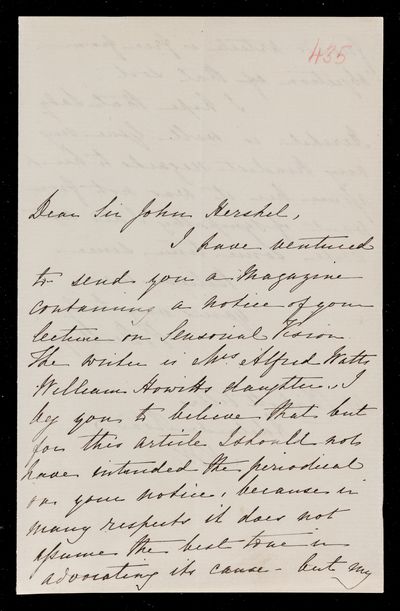 435
Dear Sir John Hershel,
I have ventured
to send you a Magazine
containing a notice of your
lecture on Sensorial Vision.
The writer is Mrs Alfred Watts
William Howitts daughter. I
beg you to believe that but
for this article I should not
have intruded the periodical
on your notice, because in
many respects it does not
assume the best tone in
advocating its cause - but my